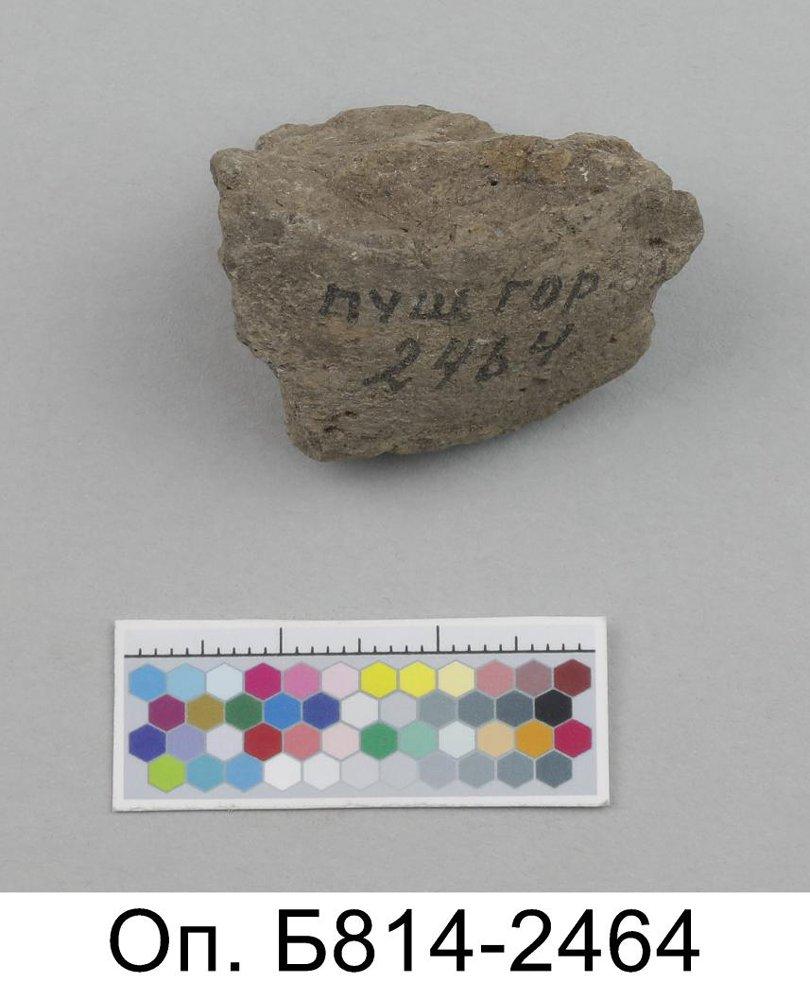 пуш гор
2464
Оп. Б814-2464